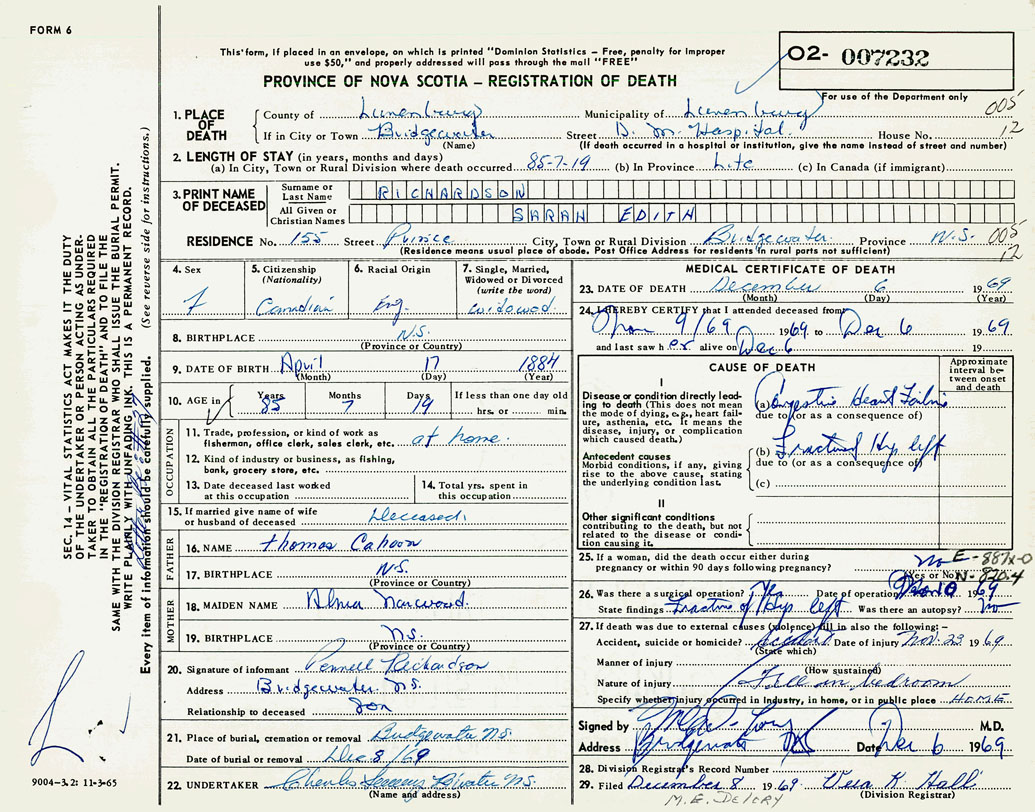 FORM 6
This form, if placed in an envelope, on which is printed "Dominion Statistics – Free, penalty for improper
use $50," and properly addressed will pass through the mail "FREE"
PROVINCE OF NOVA SCOTIA – REGISTRATION OF DEATH
02- 007232
For use of the Department only
005
12
1. PLACE OF DEATH
County of Lunenburg Municipality of Lunenburg
If in City or Town Bridgewater Street D. M. Hospital. House No.
(Name) (If death occurred in a hospital or institution, give the name instead of street and number)
2. LENGTH OF STAY (in years, months and days)
(a) In City, Town or Rural Division where death occurred 85-7-19 (b) In Province Life (c) In Canada (if immigrant)
3. PRINT NAME OF DECEASED
Surname or Last Name RICHARDSON
All Given or Christian Names SARAH EDITH
RESIDENCE No. 155 Street Prince City, Town or Rural Division Bridgewater Province N.S. 005
12
(Residence means usual place of abode. Post Office Address for residents in rural parts not sufficient)
4. Sex F
5. Citizenship (Nationality) Canadian
6. Racial Origin Eng.
7. Single, Married, Widowed or Divorced (write the word) widowed.
8. BIRTHPLACE N.S.
(Province or Country)
9. DATE OF BIRTH April 17 1884
(Month) (Day) (Year)
10. AGE in Years 85 Months 7 Days 19 If less than one day old hrs. or min.
OCCUPATION
11. Trade, profession, or kind of work as fisherman, office clerk, sales clerk, etc. at home.
12. Kind of industry or business, as fishing, bank, grocery store, etc.
13. Date deceased last worked at this occupation
14. Total yrs. spent in this occupation
15. If married give name of wife or husband of deceased Deceased.
FATHER
16. NAME Thomas Cahoon
17. BIRTHPLACE N.S.
(Province or Country)
MOTHER
18. MAIDEN NAME
19. BIRTHPLACE N.S.
(Province or Country)
20. Signature of informant Richardson
Address Bridgewater N.S.
Relationship to deceased Son
21. Place of burial, cremation or removal Bridgewater N.S.
Date of burial or removal Dec. 8/69
22. UNDERTAKER Charles
(Name and address)
MEDICAL CERTIFICATE OF DEATH
23. DATE OF DEATH December 6 1969
(Month) (Day) (Year)
24. I HEREBY CERTIFY that I attended deceased from
9/69 1969 to Dec 6 1969
and last saw her alive on Dec 6 19
CAUSE OF DEATH
Approximate interval between onset and death
I
Disease or condition directly leading to death (This does not mean the mode of dying, e.g., heart failure, asthenia, etc. It means the disease, injury, or complication which caused death.)
(a) Congestive Heart Failure
due to (or as a consequence of)
Antecedent causes
Morbid conditions, if any, giving rise to the above cause, stating the underlying condition last.
(b) Fractured Hip left
due to (or as a consequence of)
(c)
II
Other significant conditions contributing to the death, but not related to the disease or condition causing it.
25. If a woman, did the death occur either during pregnancy or within 90 days following pregnancy? No
(Yes or No)
E-887X-0
N-820.4
26. Was there a surgical operation? Yes Date of operation 1969
State findings Fracture of Hip left Was there an autopsy? No
27. If death was due to external causes (violence) fill in also the following:–
Accident, suicide or homicide? Accident Date of injury Nov. 29 1969
(State which)
Manner of injury
(How sustained)
Nature of injury Fell in bedroom
Specify whether injury occurred in industry, in home, or in public place HOME
Signed by M.D.
Address Bridgewater NS Date Dec 6 1969
28. Division Registrar's Record Number
29. Filed December 8 1969 Vera K. Hall
(Division Registrar)
M.E. DeLORY
SEC. 14 – VITAL STATISTICS ACT MAKES IT THE DUTY
OF THE UNDERTAKER OR PERSON ACTING AS UNDER-
TAKER TO OBTAIN ALL THE PARTICULARS REQUIRED
IN THE "REGISTRATION OF DEATH" AND TO FILE THE
SAME WITH THE DIVISION REGISTRAR WHO SHALL ISSUE THE BURIAL PERMIT.
WRITE PLAINLY WITH UNFADING INK. THIS IS A PERMANENT RECORD.
Every item of information should be carefully supplied. (See reverse side for instructions.)
9004-3.2: 11-3-65